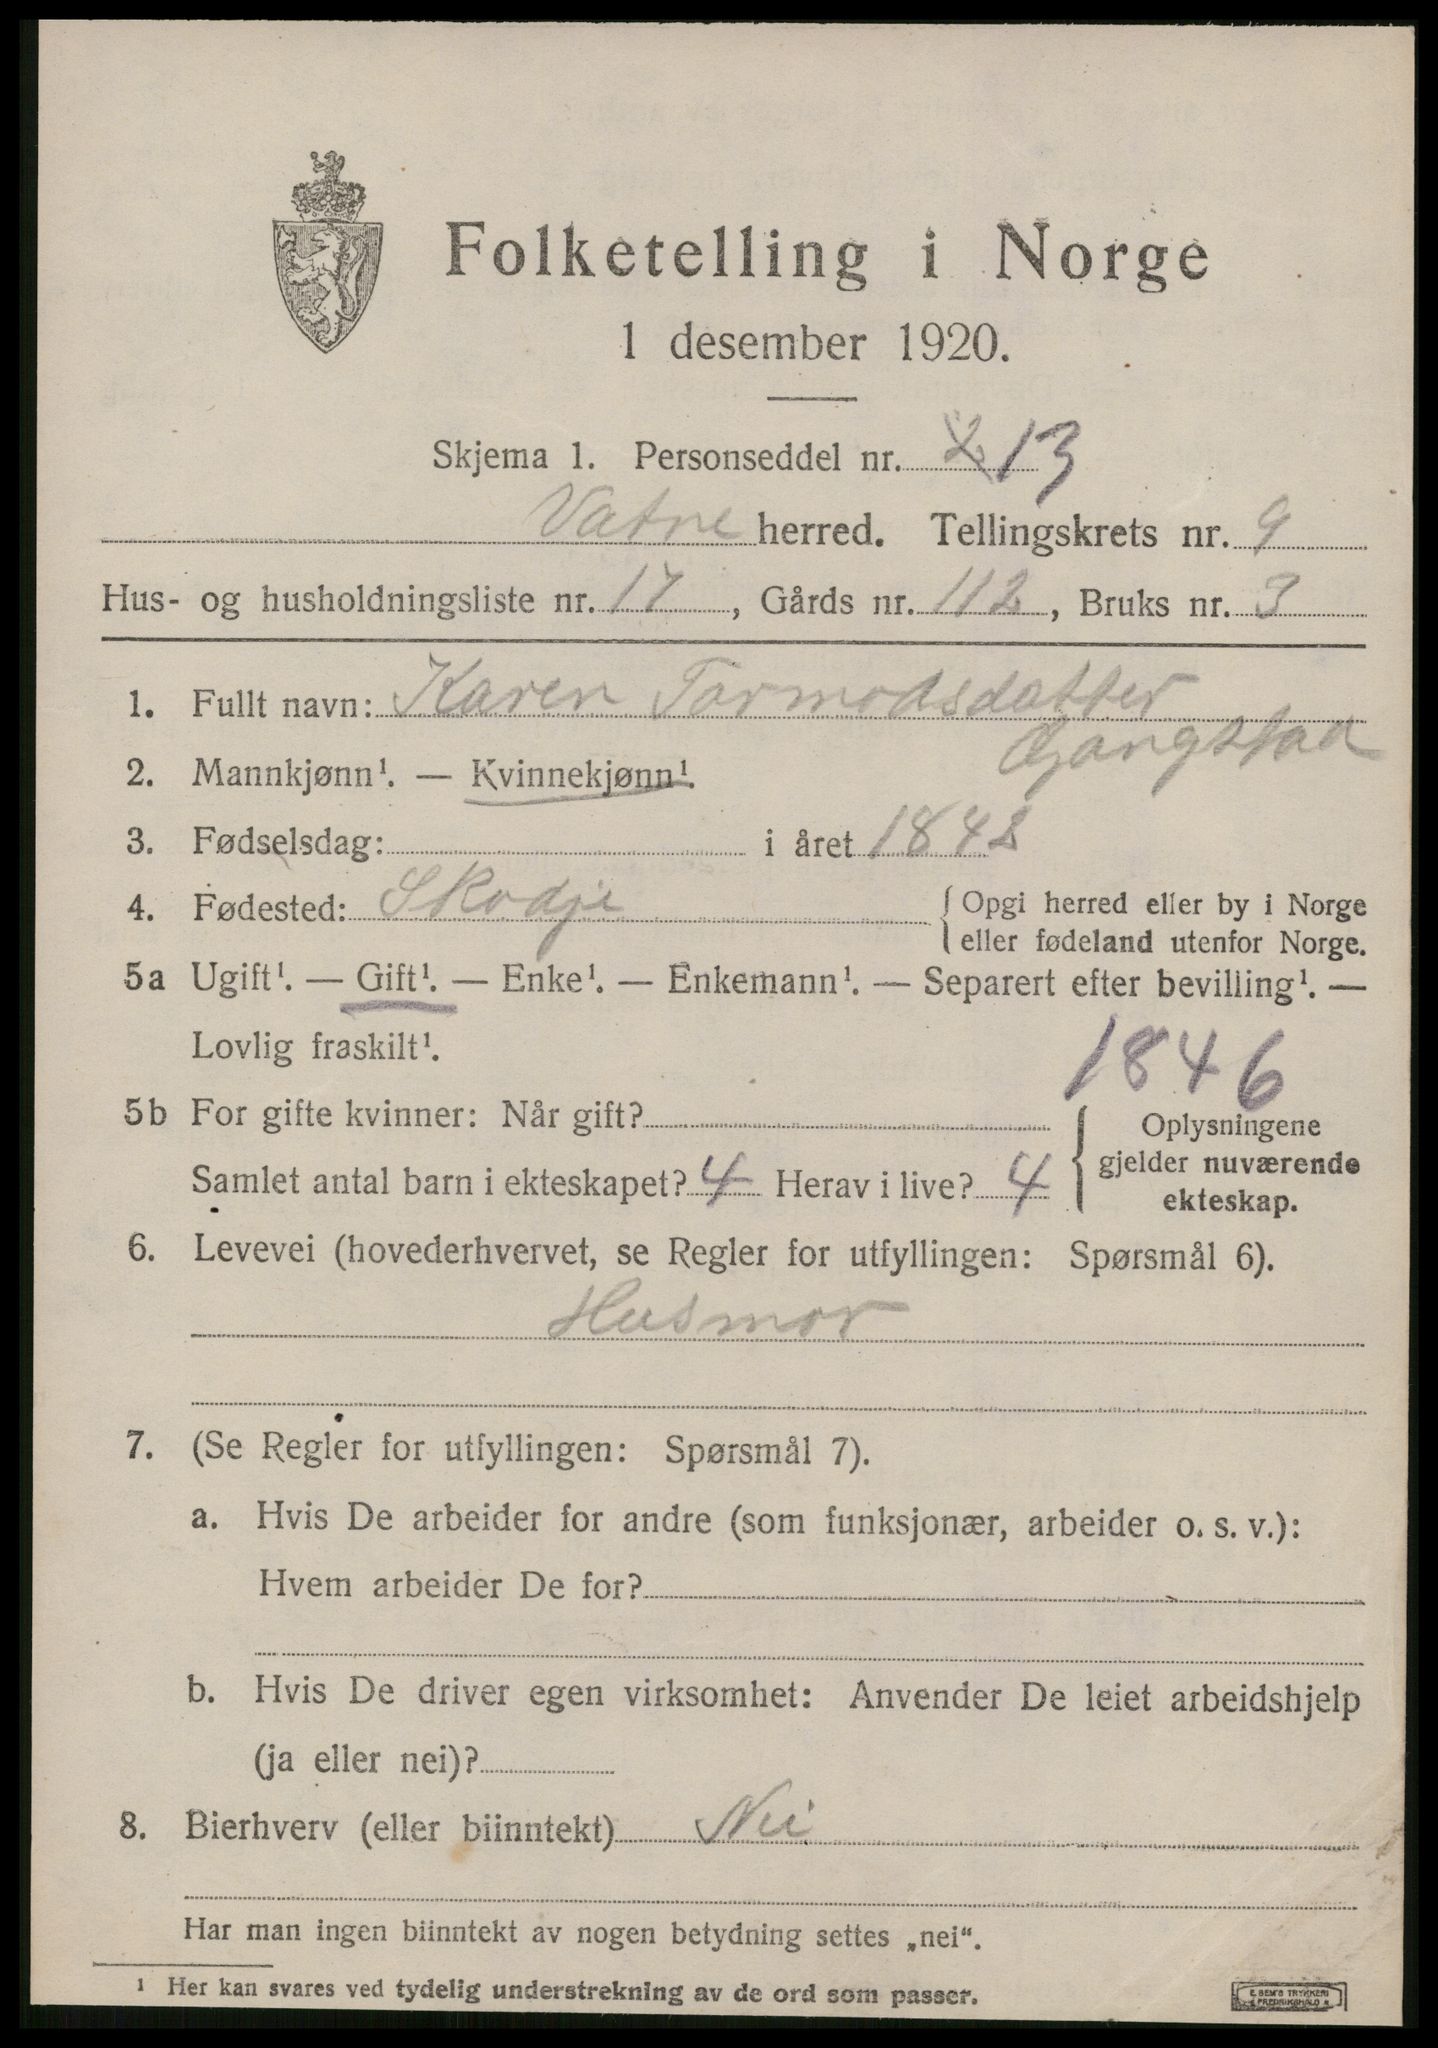 Folketelling i Norge
1 desember 1920.
Skjema 1. Personseddel nr. 2 13
Vatne herred. Tellingskrets nr. 9
Hus- og husholdningsliste nr. 17, Gårds nr. 112, Bruks nr. 3
1. Fullt navn: Karen Tormodsdatter
Gangstad
2. Mannkjønn¹. — Kvinnekjønn¹.
3. Fødselsdag: i året 1842
4. Fødested: Skodje { Opgi herred eller by i Norge
eller fødeland utenfor Norge.
5a Ugift¹. — Gift¹. — Enke¹. — Enkemann¹. — Separert efter bevilling¹. —
Lovlig fraskilt¹.
1846
5b For gifte kvinner: Når gift?
Samlet antal barn i ekteskapet? 4 Herav i live? 4
Oplysningene
gjelder nuværende
ekteskap.
6. Levevei (hovederhvervet, se Regler for utfyllingen: Spørsmål 6).
Husmor
7. (Se Regler for utfyllingen: Spørsmål 7).
a. Hvis De arbeider for andre (som funksjonær, arbeider o. s. v.):
Hvem arbeider De for?
b. Hvis De driver egen virksomhet: Anvender De leiet arbeidshjelp
(ja eller nei)?
8. Bierhverv (eller biinntekt) Nei
Har man ingen biinntekt av nogen betydning settes „nei“.
¹ Her kan svares ved tydelig understrekning av de ord som passer.
E. SEM'S TRYKKERI
FREDRIKSHALD